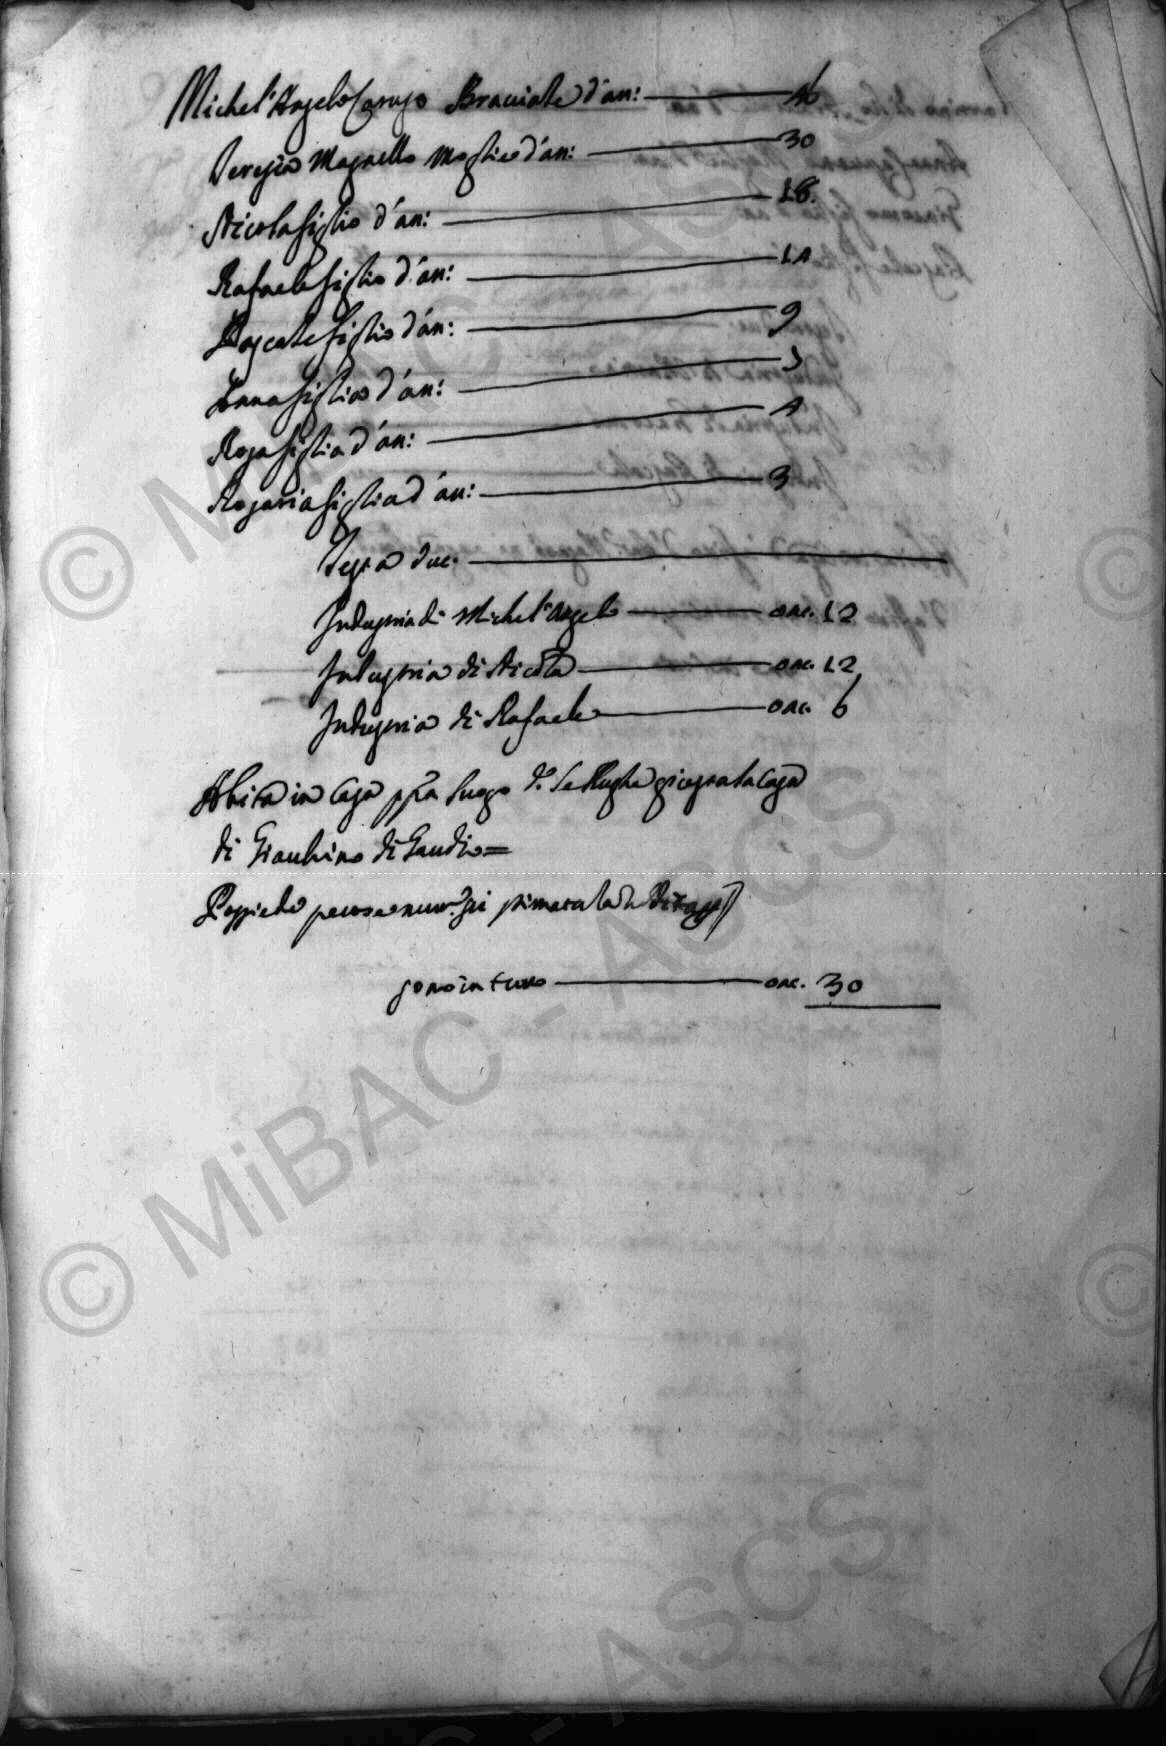 Michel'Angelo Caruso Bracciale d'an: 46
Teresia Magnello moglie d'an: 30
Nicola figlio d'an: 18.
Rafaele figlio d'an: 14
Pascale figlio d'an: 9
Anna figlia d'an: 5
Rosa figlia d'an: 4
Rosaria figlia d'an: 3
Testa duc.
Industria di Michel'Angelo onc. 12
Industria di Nicola onc. 12
Industria di Rafaele onc. 6
Abita in casa ppa luogo d.o le giusta la casa
di Gianbino di Gaudio=
Possiede
sono in tutto onc. 30
© MiBAC - ASCS
© MiBAC - ASCS